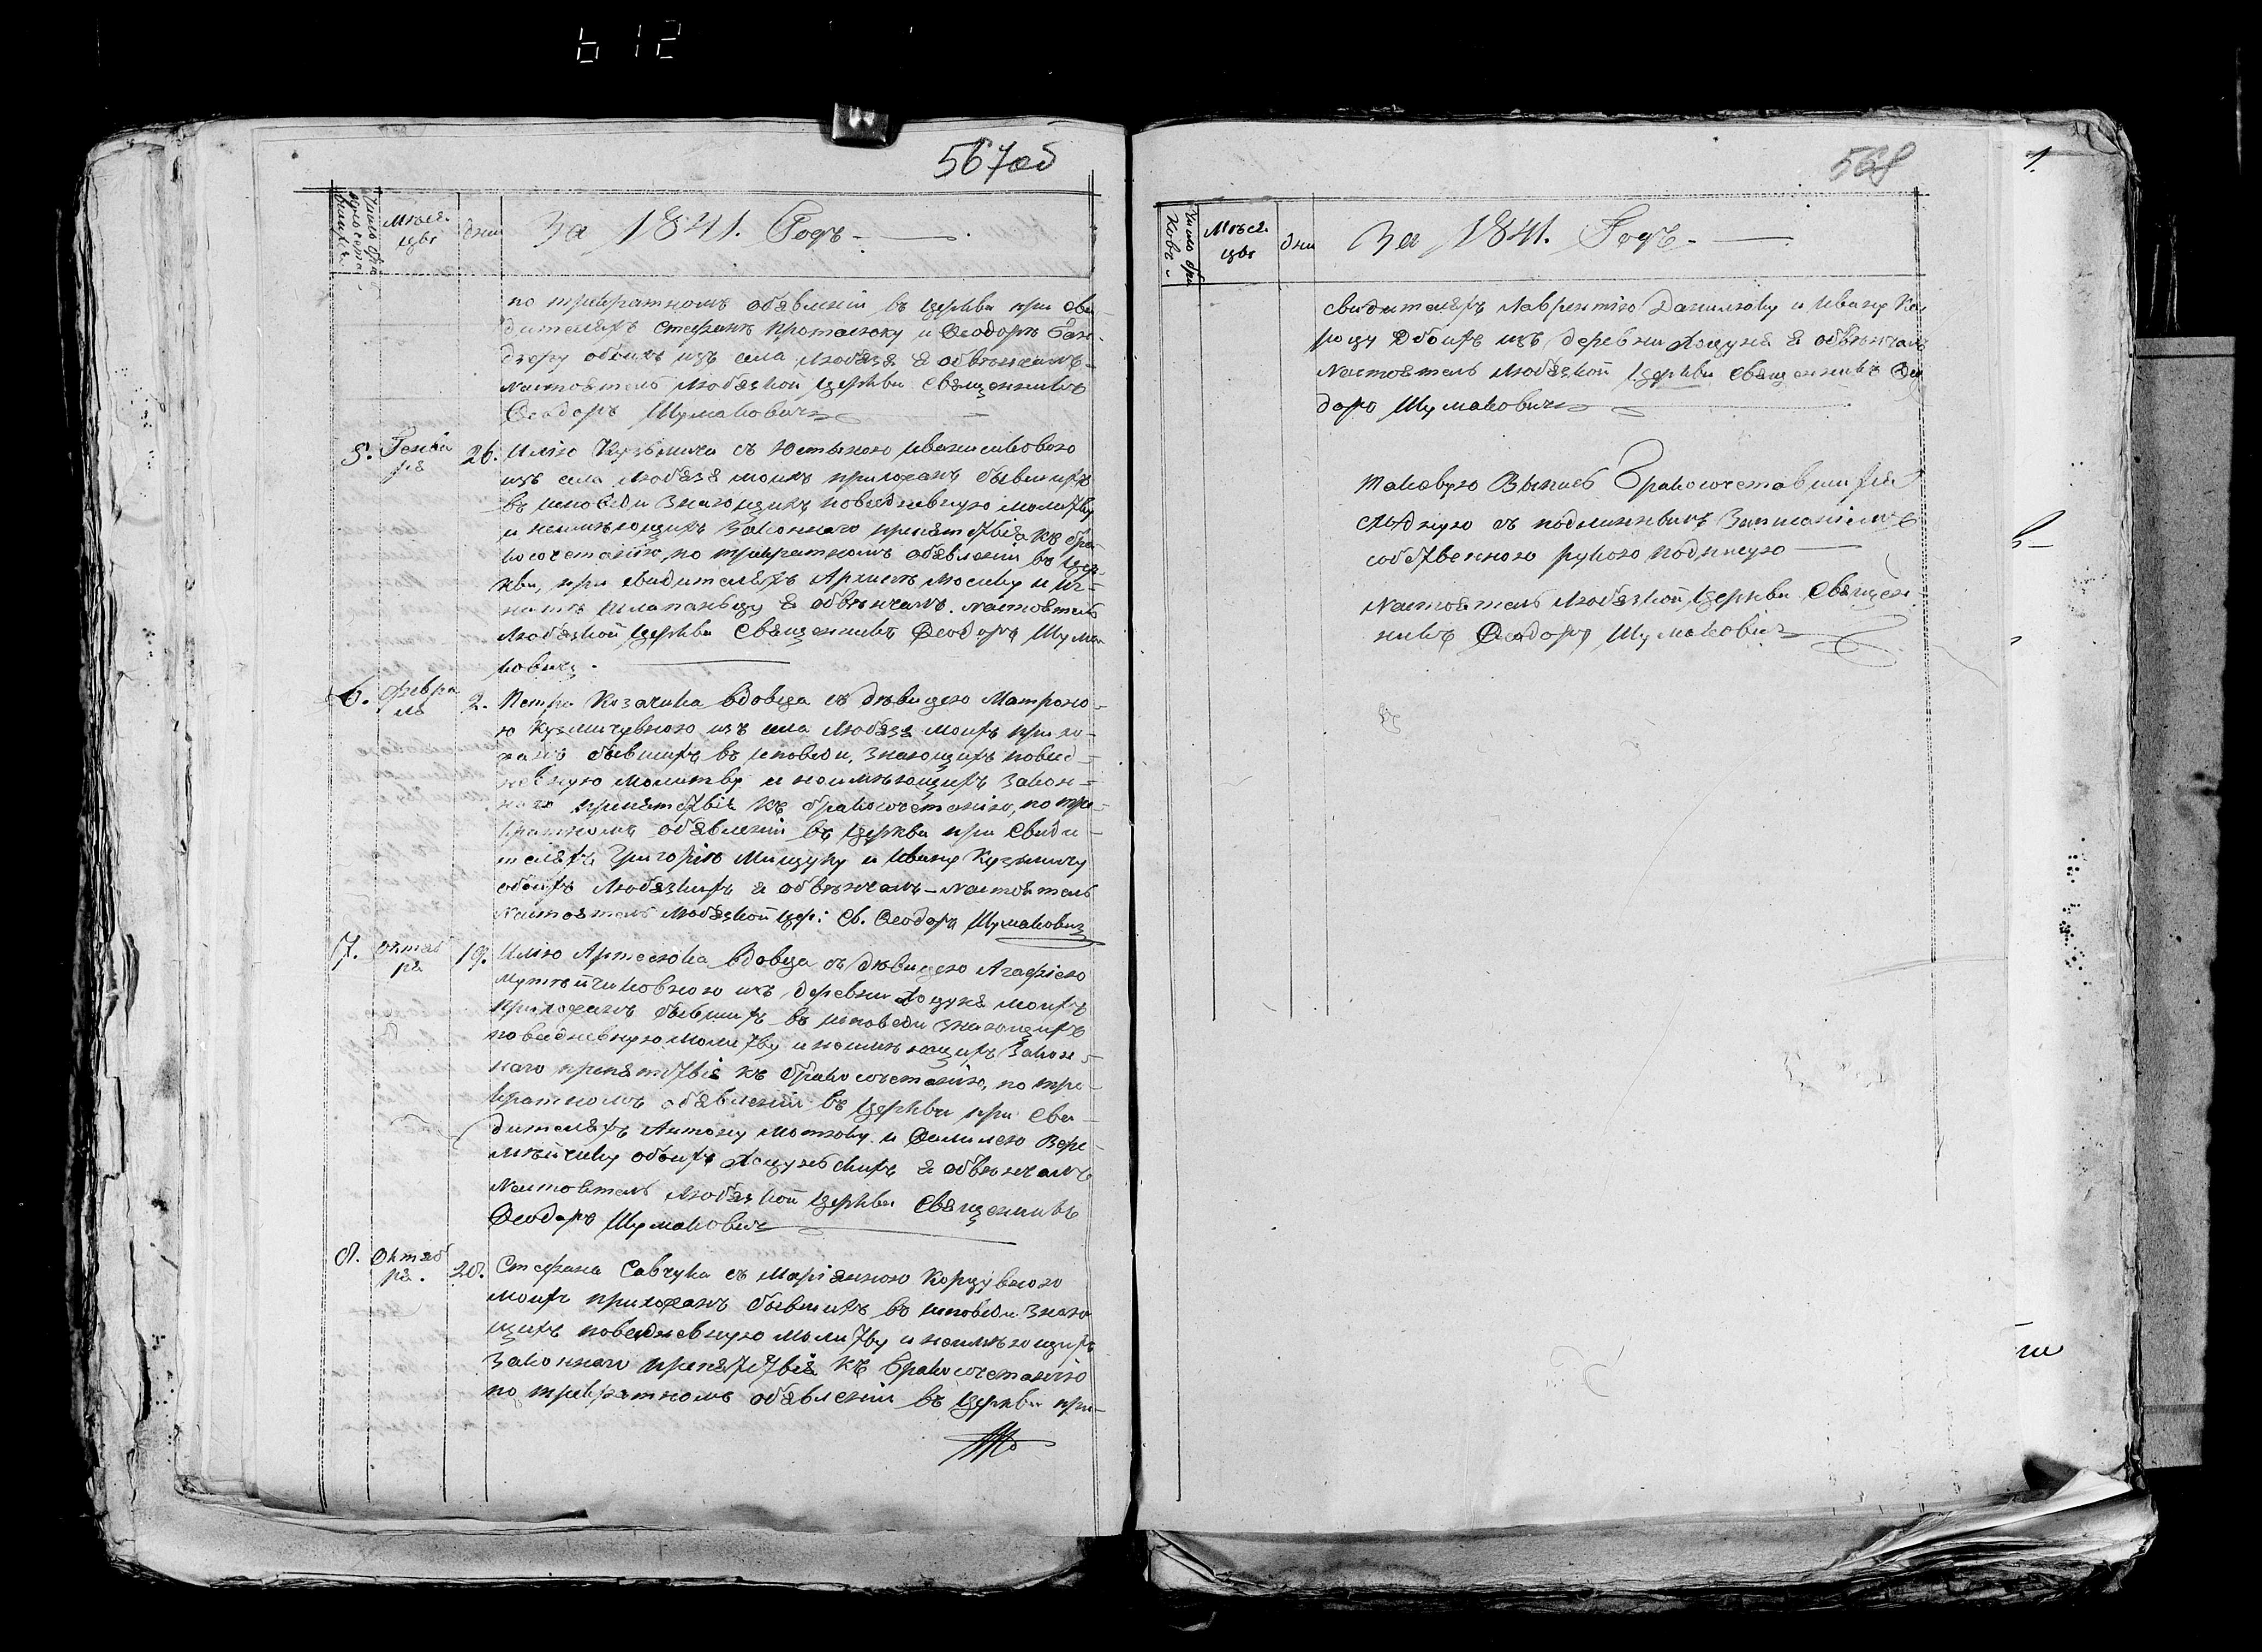 612
567об
Число бра
косоче та
вшихся
Мѣся.
цы
дни
За 1841. Годъ
по трикратномъ объявленіи въ Церкви при сви
дителяхъ Стефанѣ Протасюку и Ѳеодорѣ
обоихъ изъ села Любязя я обвѣнчалъ
Настоятель Любязкой Церкви Священникъ
Ѳеодоръ Шумаковичъ
5. Генва
ря 26. Илію Кузьмича съ Юстыною
изъ села Любязя моихъ прихожанъ бывшихъ
въ исповѣди знающихъ повседневную молитву
и неимѣющихъ законнаго препятствія къ бра
косочетанію, по трикратномъ объявленіи въ Цер
кви, при свидителяхъ и Иг
нату я обвѣнчалъ. Настоятель
Любязкой Церкви Священникъ Ѳеодоръ Шума
ковичъ.
6. Февра
ля 2. Петра Казачика вдовца съ дѣвицею Матроно
ю Кузмичувною изъ села Любязя моихъ прихо
жанъ бывшихъ въ исповѣди, знающихъ повсед
невную молитву и неимѣющихъ закон
наго препятствія къ бракосочетанію, по три
кратномъ объявленіи въ Церкви при свиди
теляхъ Григорію Мищуку и Ивану Кузьмичу
обоихъ Любязкихъ я обвѣнчалъ Настоятель
Настоятель Любязкой Цер: Св. Ѳеодоръ Шумаковичъ
7. Октяб
ря 19. Илію вдовца съ дѣвицею Агафіею
изъ деревни Хоцуня моихъ
прихожанъ бывшихъ въ исповѣди знающихъ
повседневную молитву и неимѣющихъ закон
наго препятствія къ бракосочетанію, по три
кратномъ объявленіи въ Церкви при сви
дителяхъ Антону и Вере
мѣйчику обоихъ Хоцунскихъ я обвѣнчалъ
Настоятель Любязкой Церкви Священникъ
Ѳеодоръ Шумаковичъ
8. Октяб
ря. 20. Стефана Савчука съ Маріанною
моихъ прихожанъ бывшихъ въ исповѣди знаю
щихъ повседневную молитву и неимѣющихъ
законнаго препятствія къ бракосочетанію
по трикратномъ объявленіи въ Церкви при
568
Число бра
Мѣся.
цы
дни
За 1841. Годъ
свидителяхъ Лаврентію Данилюку и Ивану Ко
рцу обоихъ изъ деревни Хоцуня я обвѣнчалъ
Настоятель Любязкой Церкви Священникъ Ѳео
доръ Шумаковичъ
Таковую Выпись Бракосочетавшихся
сходную съ подлиннымъ Записаніемъ
собственною рукою подписую
Настоятель Любязкой Церкви Священ
никъ Ѳеодоръ Шумаковичъ
1.